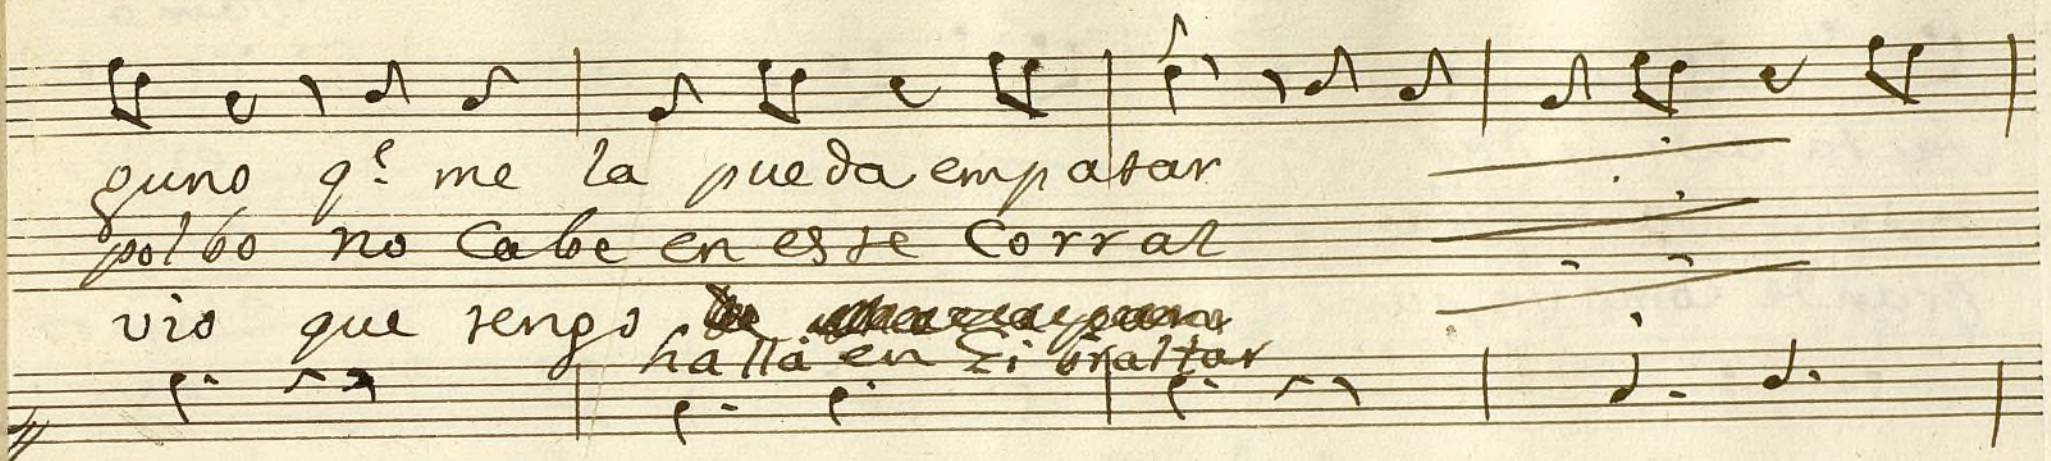 guno q.e me la pueda empatar
polbo no Cabe en este Corral
vio que tengo
halla en Zibraltar